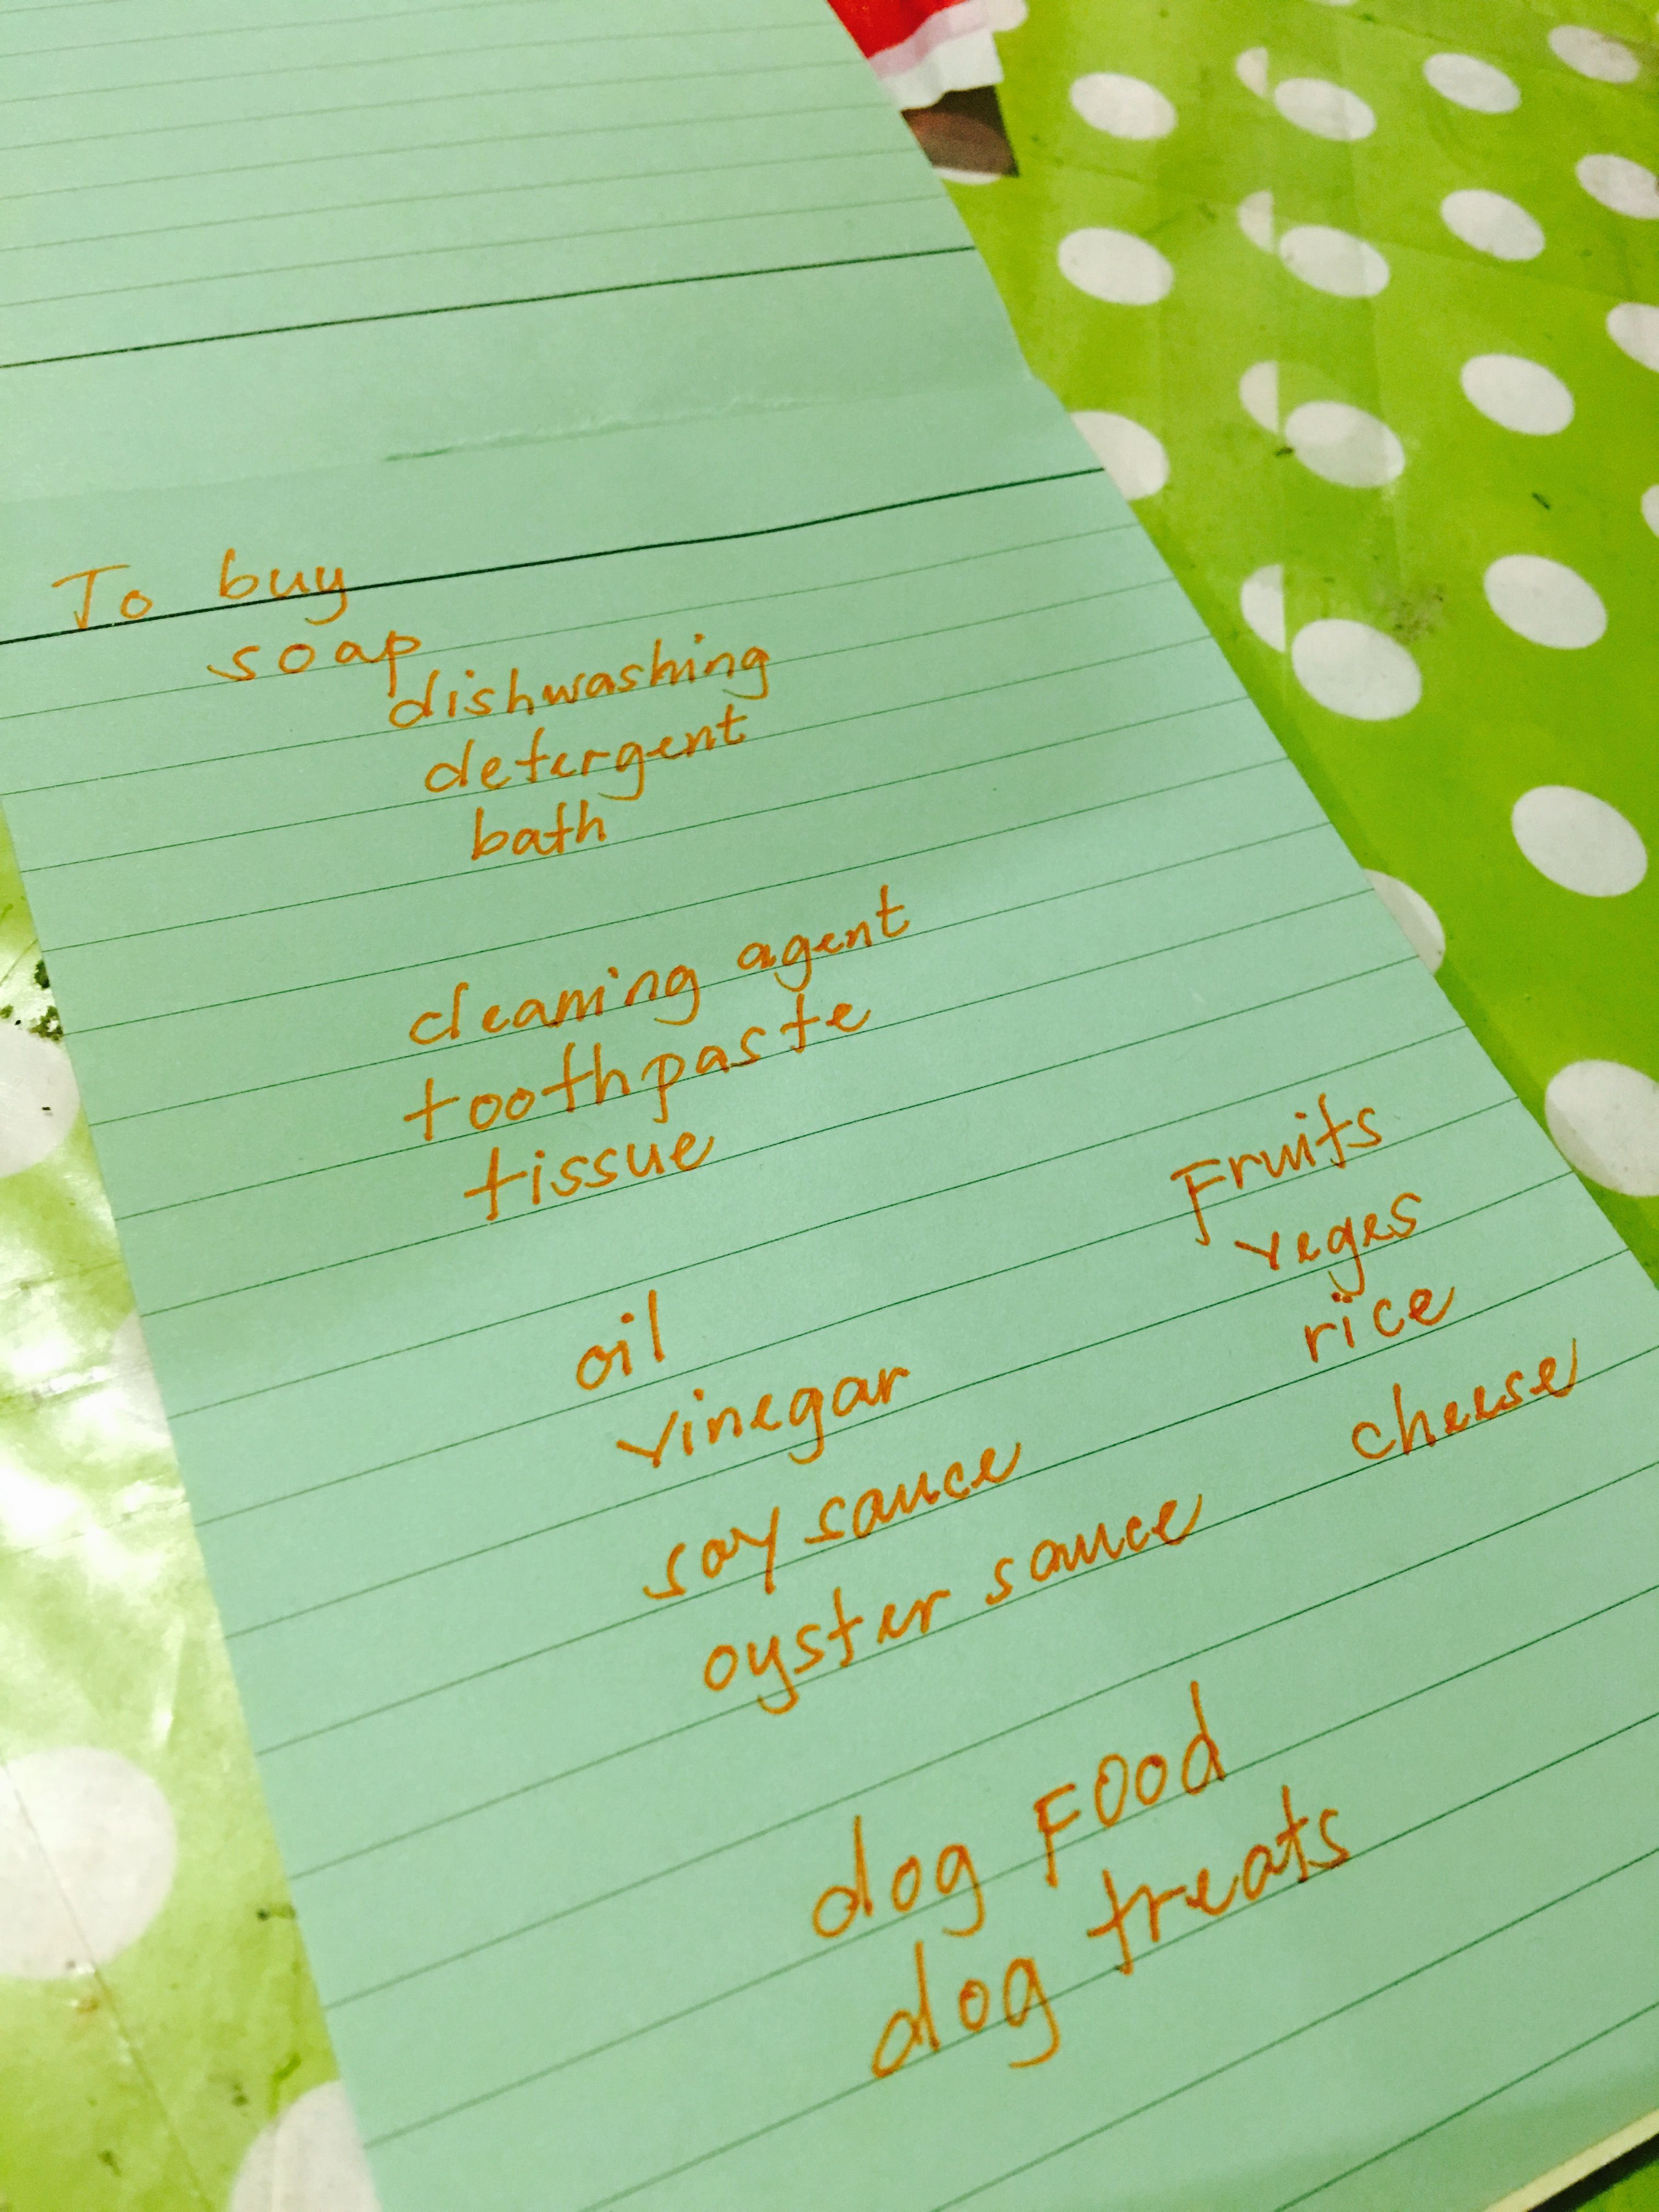 To buy
soap
dishwashing
detergent
bath
cleaning agent
toothpaste
tissue
oil
vinegar
soy sauce
oyster sauce
Fruits
veges
rice
cheese
dog Food
dog treats